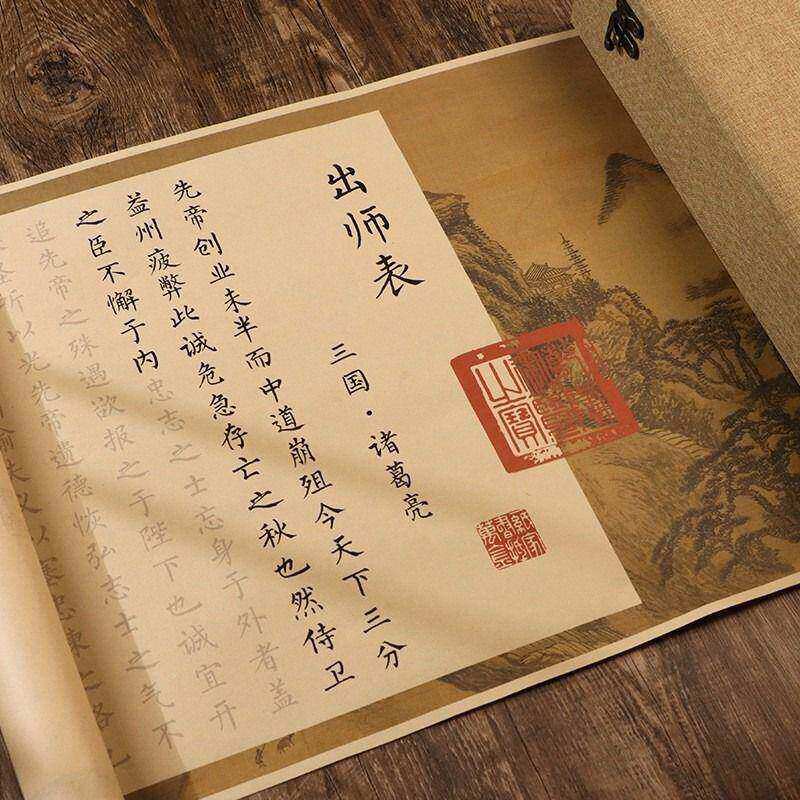 出师表
三国·诸葛亮
先帝创业未半而中道崩殂今天下三分
益州疲弊此诚危急存亡之秋也然侍卫
之臣不懈于内忠志之士忘身于外者盖
追先帝之殊遇欲报之于陛下也诚宜开
听以光先帝遗德恢弘志士之气不
喻失义以塞忠谏之路也
山寳